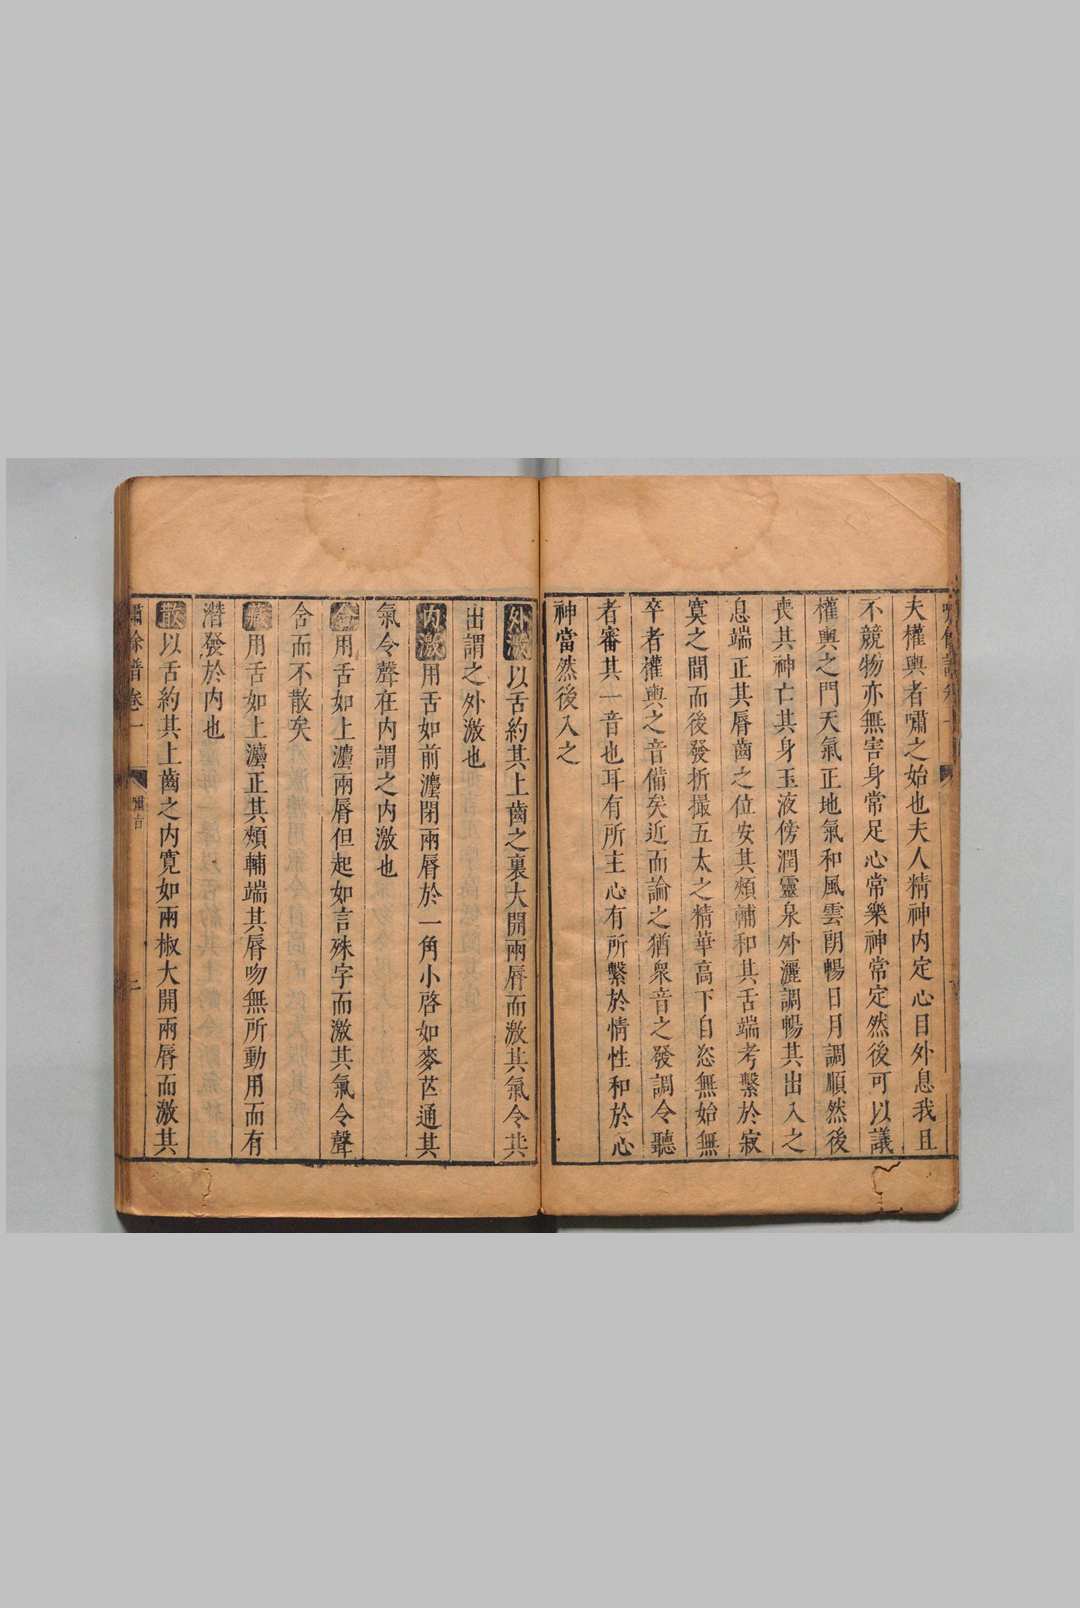 夫權輿者嘯之始也夫人精神内定心目外息我且
不競物亦無害身常足心常樂神常定然後可以議
權輿之門天氣正地氣和風雲朗暢日月調順然後
喪其神亡其身玉液傍潤靈泉外灑調暢其出入之
息端正其唇齒之位安其頰輔和其舌端考繫於寂
寞之間而後發折撮五太之精華高下自恣無始無
卒者權輿之音備矣近而論之猶衆音之發調令聽
者審其一音也耳有所主心有所繫於情性和於心
神當然後入之
外激以舌約其上齒之裏大開兩唇而激其氣令其
出謂之外激也
内激用舌如前灋閉兩唇於一角小啓如麥芒通其
氣令聲在内謂之内激也
含用舌如上灋兩唇但起如言殊字而激其氣令聲
含而不散矣
藏用舌如上灋正其頰輔端其唇吻無所動用而有
潛發於内也
散以舌約其上齒之内寛如兩椒大開兩唇而激其
嘯餘譜卷一
嘯旨
二